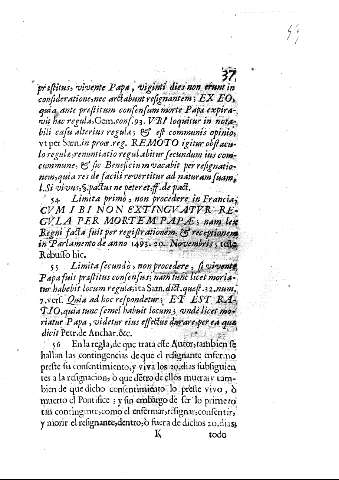 37
præstitus, vivente Papa, viginti dies non erunt in
consideratione, nec arctabunt resignantem; EX EO,
quia ante præstitum consensum morte Papæ expira-
vit hæc regula; Gom. cons. 93. UBI loquitur in nota-
bili casu alterius regulæ; & est communis opinio,
vt per Sarn. in proœ. reg. REMOTO igitur obstacu-
lo regulæ, renuntiatio regulabitur secundum ius com-
mune, & sic Beneficium vacabit per resignatio-
nem, quia res de facili revertitur ad naturam suam,
l. Si vnus, §. pactus ne peteret, ff. de pact.
54 Limita primò, non procedere in Francia,
CVM IBI NON EXTINGVATVR RE-
GVLA PER MORTEM PAPÆ, nam lex
Regni facta fuit per registrationem, & receptionem
in Parlamento de anno 1493. 20. Novembris; teste
Rebuffo hic.
55 Limita secundo, non procedere, si vivente
Papa fuit præstitus consensus, nam tunc licet moria-
tur habebit locum regula, ita Sarn. dict. quæst. 32. num.
7. vers. Quia ad hoc respondetur; ET EST RA-
TIO, quia tunc semel habuit locum; vnde licet mo-
riatur Papa, videtur eius effectus durare, per ea quæ
dicit Petr. de Anchar. &c.
56 En la regla, de que trata este Autor, tambien se
hallan las contingencias de que el resignante enfermo
preste su consentimiento, y viva los 20. dias subsiguien-
tes a la resignacion, ò que dẽtro de ellos muera; y tam-
bien de que dicho consentimiento lo preste vivo, ò
muerto el Pontifice; y sin embargo de ser lo primero
tan contingente, como el enfermar, resignar, consentir,
y morir el resignante, dentro, ò fuera de dichos 20. dias,
K todo